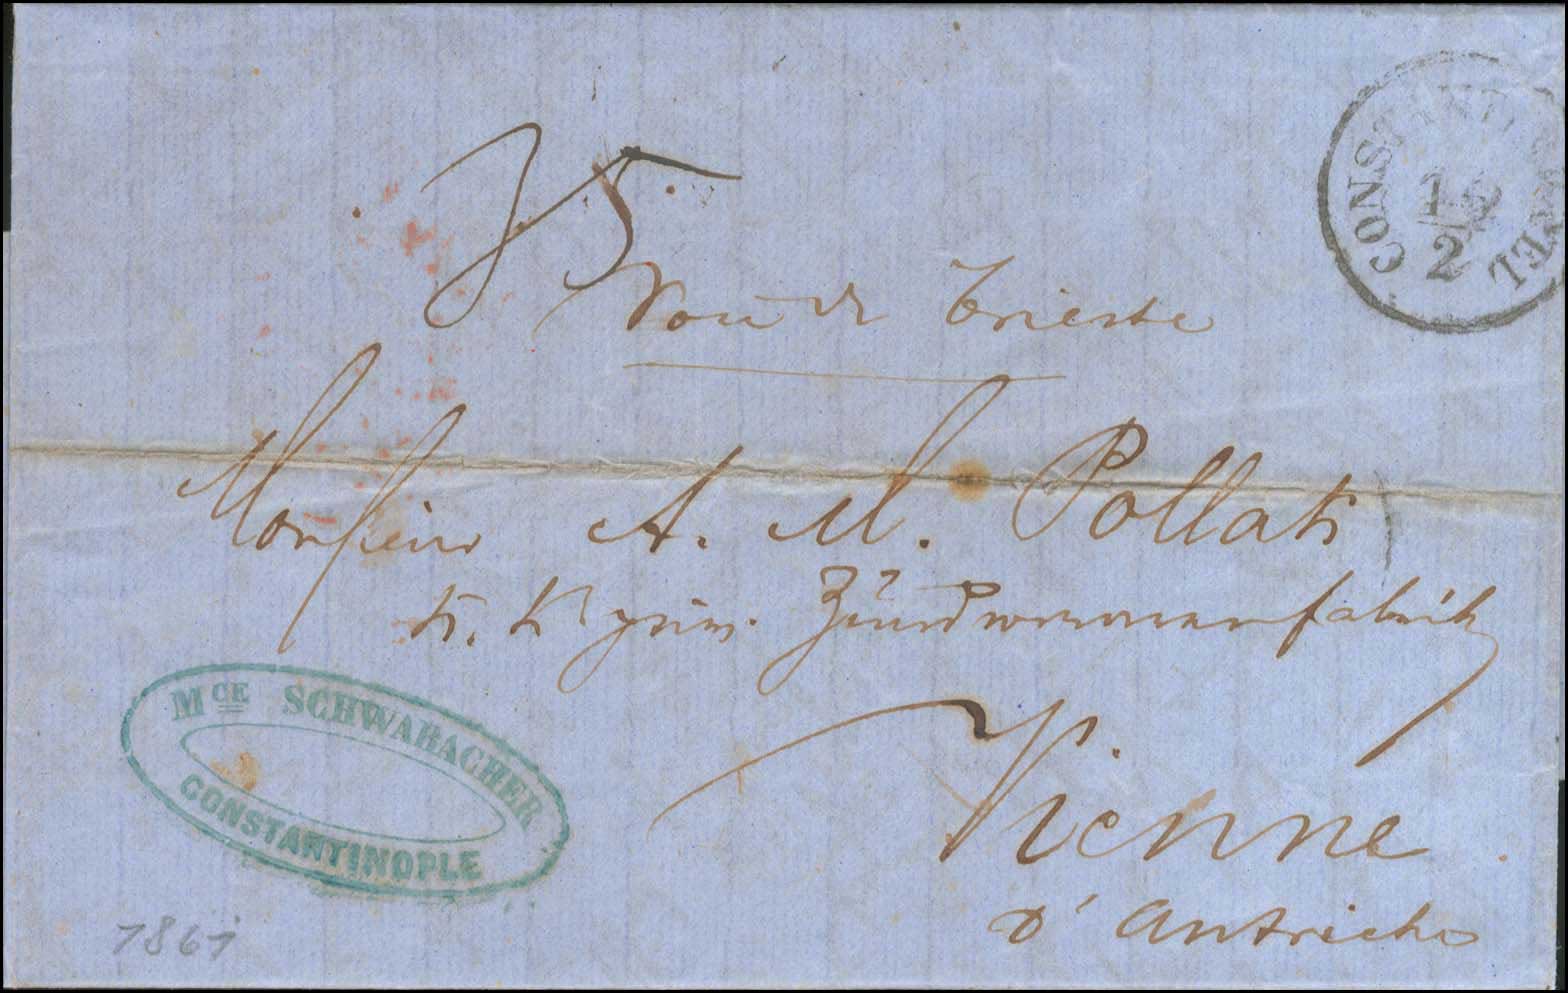 CONSTANTINOPEL
2
Trieste
Monsieur A. M. Pollak
K. K. priv. Zündwaarenfabrik
Vienne
d' Autriche
Mᶜᴱ SCHWABACHER
CONSTANTINOPLE
1861